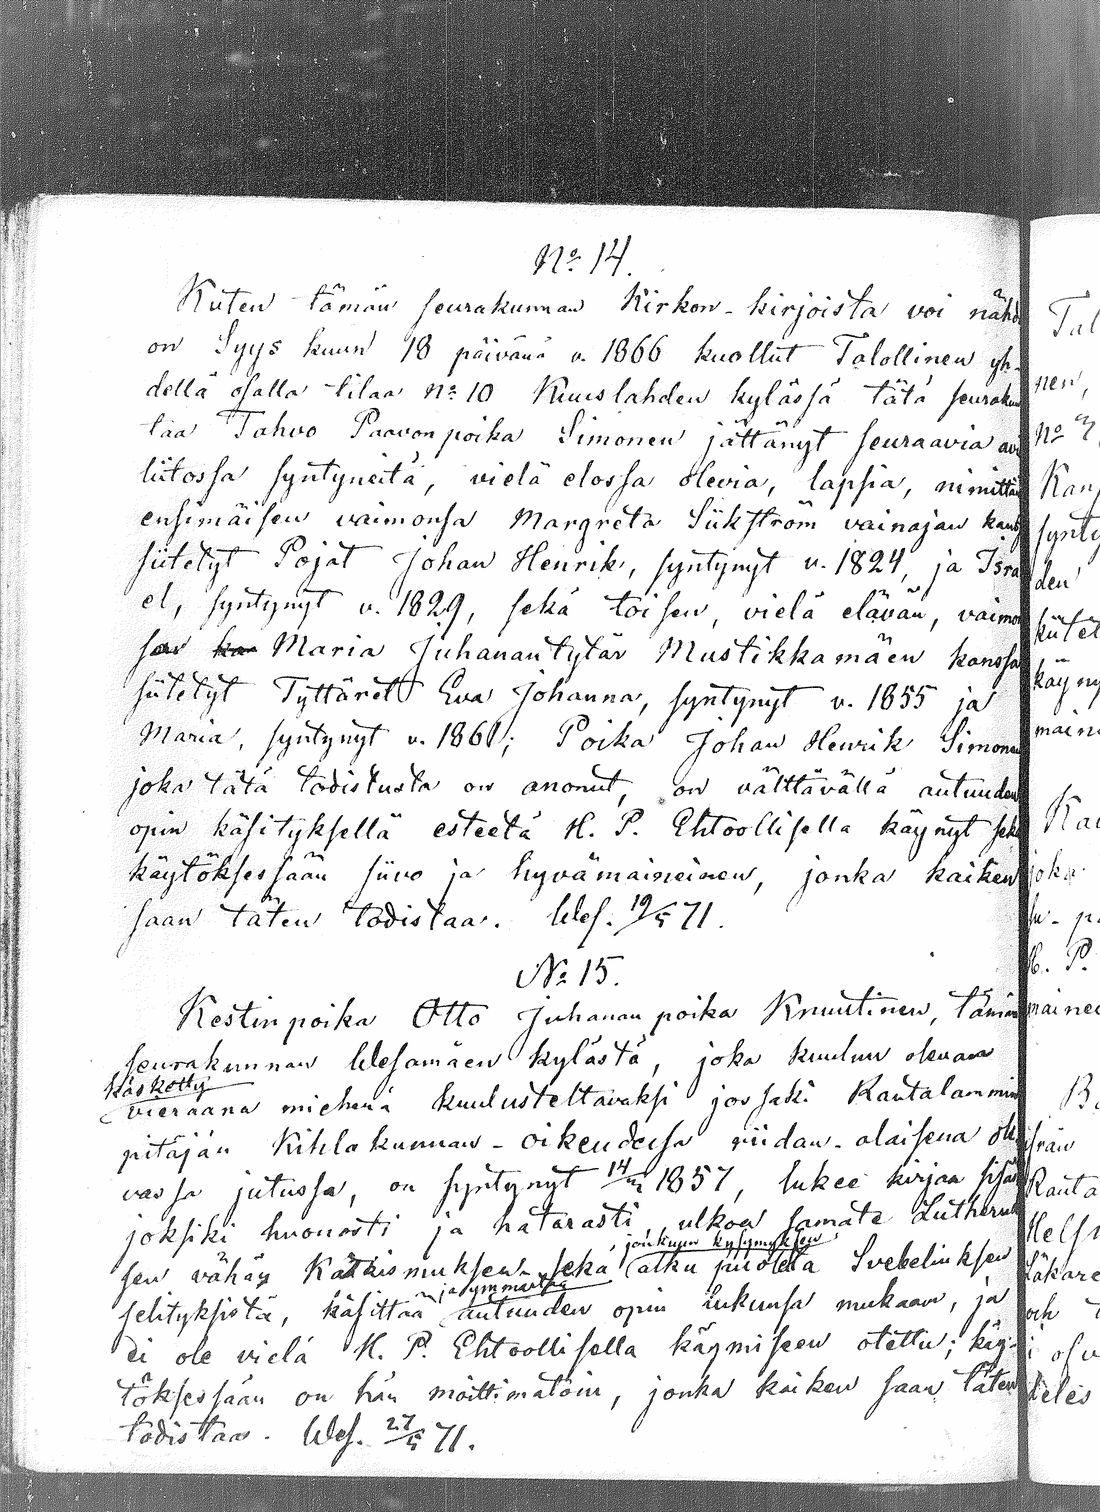 No 14.
Kuten tämän seurakunnan Kirkon-kirjoista voi nähdä
on Syys kuun 18 päivänä v. 1866 kuollut Talollinen yh-
dellä osalla tilaa No 10 Kuuslahden kylässä tätä seurakun
taa Tahvo Paavonpoika Simonen jättänyt seuraavia avi
liitossa syntyneitä, vielä elossa olevia, lapsia, nimittäin
ensimäisen vaimonsa Margreta Siikström vainajan kanssa
siitetyt Pojat Johan Henrik, syntynyt v. 1824, ja Isra
el, syntynyt v. 1829, sekä toisen, vielä elävän, vaimon
san Maria Juhanantytär Mustikkamäen kanssa
siitetyt Tyttäret Eva Johanna, syntynyt v. 1855 ja
Maria, syntynyt v. 1861; Poika Johan Henrik Simonen
joka tätä todistusta on anonut, on välttävällä autuuden
opin käsityksellä esteetä H. P. Ehtoollisella käynyt sekä
käytöksessään siivo ja hyvämaineinen, jonka kaiken
saan täten todistaa. Wes. 19/5 71.
No 15.
Kestinpoika Otto Juhanan poika Knuutinen, tämän
seurakunnan Wesamäen kylästä, joka kuuluu olevan
käsketty
vieraana miehenä kuulusteltavaksi jossaki Rautalammin
pitäjän Kihlakunnan-oikeudessa riidan-alaisena ole
vassa jutussa, on syntynyt 1857, lukee kirjaa sisältä
joksiki huonosti ja hatarasti, ulkoa samate Lutheruk
jonkuun kysymyksen
sen vähän Katkismuksen sekä alku puolela Svebeliuksen
ja ymmärtää
selityksistä, käsittää autuuden opin lukunsa mukaan, ja
ei ole vielä H. P. Ehtoollisella käymiseen otettu; käy-
töksessään on hän moittimatoin, jonka kaiken saan täten
todistaa. Wes. 27/5 71.